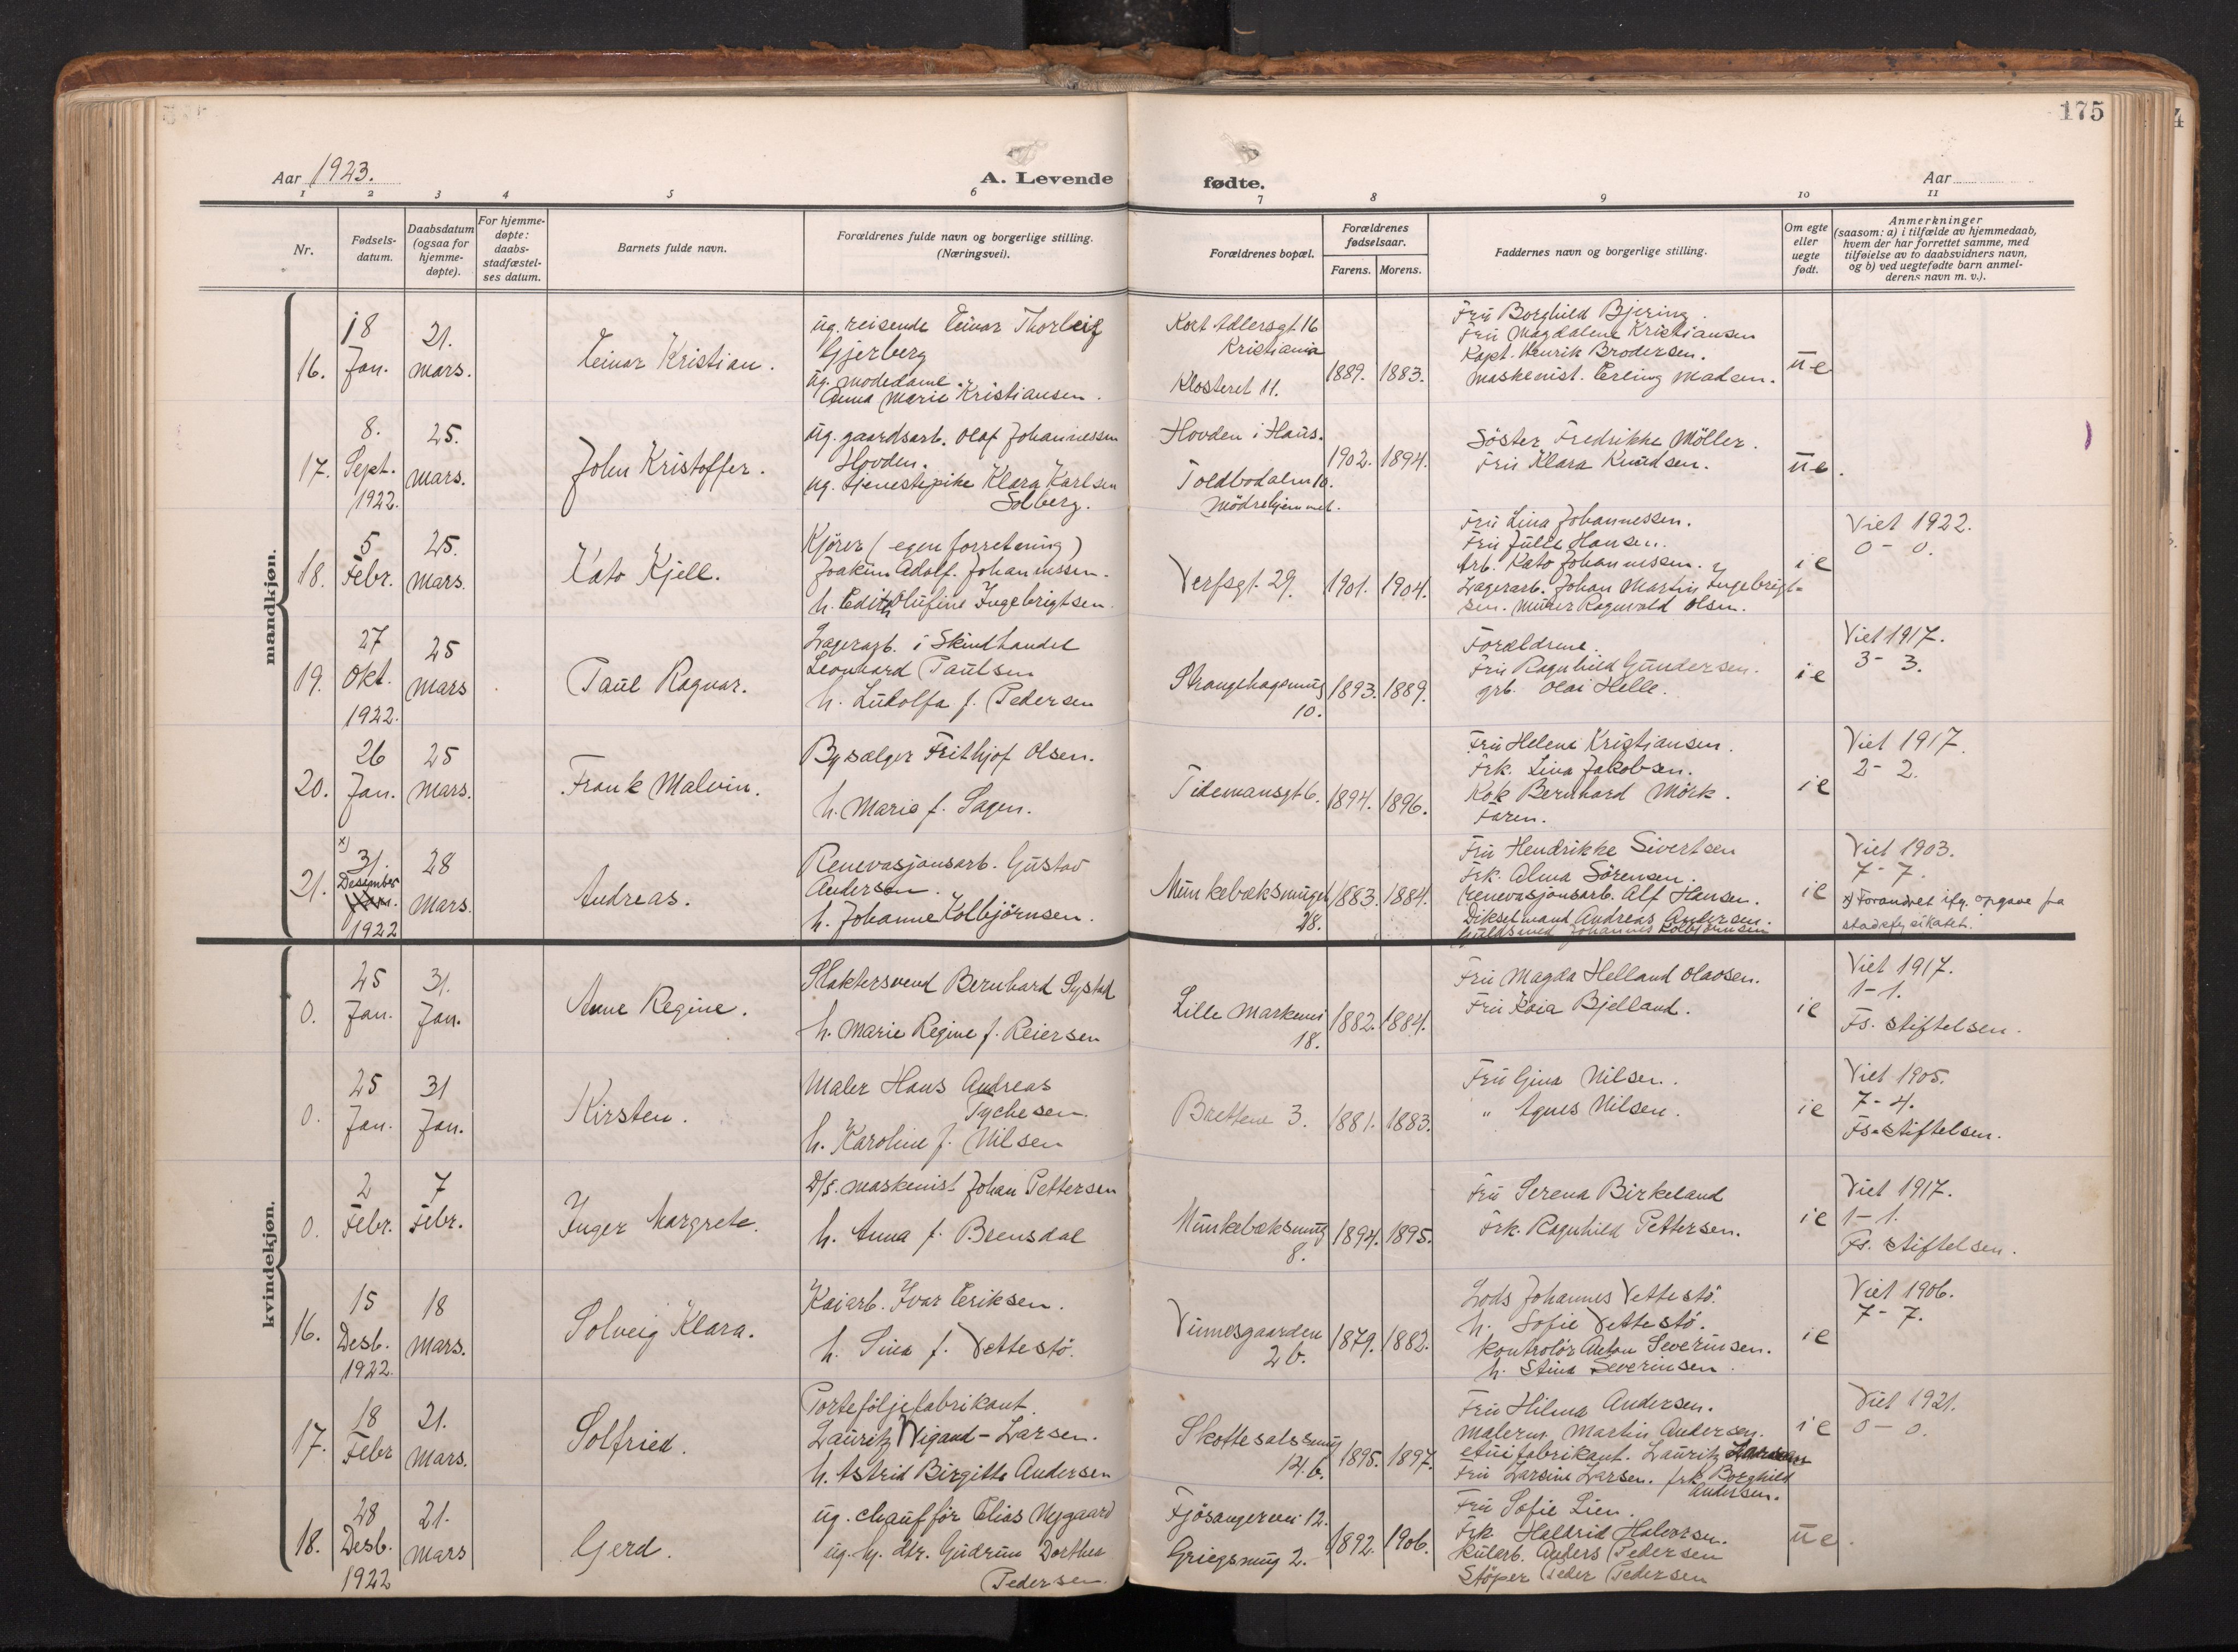 175
Aar 1923.
A. Levende fødte.
Aar
1 2 3 4 5 6 7 8 9 10 11
Nr.
Fødsels-
datum.
Daabsdatum
(ogsaa for
hjemme-
døpte).
For hjemme-
døpte:
daabs-
stadfæstel-
ses datum.
Barnets fulde navn.
Forældrenes fulde navn og borgerlige stilling.
(Næringsvei).
Forældrenes bopæl.
Forældrenes
fødselsaar.
Farens. Morens.
Faddernes navn og borgerlige stilling.
Om egte
eller
uegte
født.
Anmerkninger
(saasom: a) i tilfælde av hjemmedaab,
hvem der har forrettet samme, med
tilføielse av to daabsvidners navn,
og b) ved uegtefødte barn anmel-
derens navn m. v.).
mandkjøn.
16.
18
Jan.
21.
mars.
Einar Kristian.
ug. reisende Einar Thorleif
Gjerberg
ug. modedame
Anna Marie Kristiansen.
Kort Adlersgt. 16
Kristiania
Klosteret 11.
1889. 1883.
Fru Borghild Bjering.
Fru Magdalene Kristiansen
Kapt. Henrik Brodersen.
maskenist. Erling Madsen.
ue
17.
8.
Sept.
1922.
25.
mars.
John Kristoffer.
ug. gaardsarb. Olaf Johannessen
Hovden.
ug. tjenestepike Klara Karlsen
Solberg.
Hovden i Haus.
Toldbodalm 10.
Mödrehjemmet.
1902. 1894.
Söster Fredrikke Möller.
Fru Klara Knudsen.
ue.
18.
5
Febr.
25.
mars.
Kato Kjell.
Kjörer (egen forretning)
Joakim Adolf. Johannessen.
h. Edith Olufine Ingebrigtsen.
Verfsgt. 29.
1901. 1904.
Fru Lina Johannessen.
Fru Julle Hansen.
Arb. Kato Johannessen.
Lagerarb. Johan Martin Ingebrigt-
sen. Murer Ragnvald Olsen.
ie
Viet 1922.
0 - 0.
19.
27
Okt.
1922.
25
mars
Paul Ragnar.
Lagerarb. i Skindhandel
Leonhard Paulsen
h. Ludolfa f. Pedersen
Strangehagsmug
10.
1893. 1889.
Forældrene.
Fru Ragnhild Gundersen.
arb. Olai Helle.
ie
Viet 1917.
3 - 3.
20.
26
Jan.
25
Mars.
Frank Malvin.
Bysælger Frithjof Olsen.
h. Marie f. Sagen.
Tidemansgt 6.
1894. 1896.
Fru Helene Kristiansen.
Frk. Lina Jakobsen.
Kok Bernhard Mörk.
Faren.
ie
Viet 1917.
2 - 2.
21.
x)
31.
Desember
Jan.
1922
28
Mars.
Andreas.
Renevasjonsarb. Gustav
Andersen.
h. Johanne Kolbjörnsen.
Munkebæksmuget
28.
1883. 1884.
Fru Hendrikke Sivertsen
Frk. Alma Sörensen.
renevasjonsarb. Alf Hansen.
Dikselmand Andreas Andersen.
Guldsmed Johannes Kolbjörnsen
ie
Viet 1903.
7 - 7.
x) Forandret ifg. opgave fra
stadsfysikatet.
kvindekjøn.
0.
25
Jan.
31.
Jan.
Anne Regine.
Slaktersvend Bernhard Systad
h. Marie Regine f. Reiersen
Lille Markevei
18.
1882. 1884.
Fru Magda Helland Olavsen.
Fru Kaia Bjelland.
ie
Viet 1917.
1 - 1.
Fs. stiftelsen.
0.
25
Jan.
31
Jan.
Kirsten.
Maler Hans Andreas
Tychesen.
h. Karoline f. Nilsen
Brettene 3.
1881. 1883.
Fru Gina Nilsen.
" Agnes Nilsen.
ie
Viet 1905.
7 - 4.
Fs-stiftelsen.
0.
2
Febr.
7
Febr.
Inger Margrete.
D/s. maskenist Johan Pettersen
h. Anna f. Brensdal
Munkebæksmug
8.
1894. 1895.
Fru Serena Birkeland
Frk. Ragnhild Pettersen.
ie
Viet 1917.
1 - 1.
Fs. stiftelsen.
16.
15
Desb.
1922.
18
Mars.
Solveig Klara.
Kaiarb. Ivar Eriksen.
h. Sina f. Vettestö.
Vinnesgaarden
2 b.
1879. 1882.
Lods Johannes Vettestö.
h. Sofie Vettestö.
Kontrolör Anton Severinsen.
h. Stina Severinsen.
ie
Viet 1906.
7 - 7.
17.
18
Febr
21.
Mars.
Solfried.
Porteföljefabrikant.
Lauritz Wigand-Larsen.
h. Astrid Birgitte Andersen
Skottesalssmug
14.b.
1895. 1897.
Fru Hilma Andersen.
malerm. Martin Andersen.
etuifabrikant. Lauritz Larsen
Fru Larsine Larsen. frk. Borghild
Andersen.
ie
Viet 1921.
0 - 0.
18.
28
Desb.
1922
21.
Mars
Gerd.
ug. chauffør Elias Nygaard
ug. hj. dtr. Gudrun Dorthea
Pedersen.
Fjösangervei 12.
Griegsmug 2.
1892. 1906.
Fru Sofie Lien.
Frk Haldrid Halvorsen.
Kularb. Anders Pedersen
Stöper Peder Pedersen
ue.